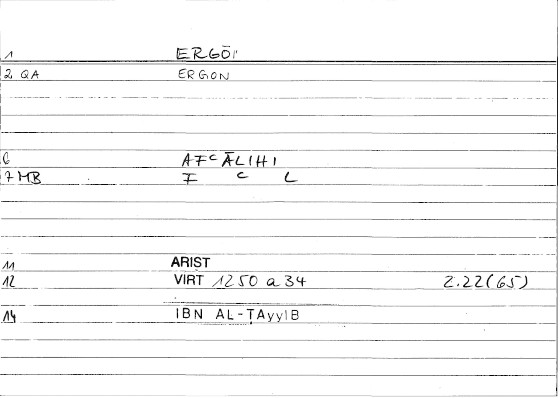 1 ERGŌI
2 QA ERGON
6 AFᶜĀLIHI
7 MB F ᶜ L
11 ARIST
12 VIRT 1250 a 34 2.22(65)
14 IBN AL-ṬAyyIB